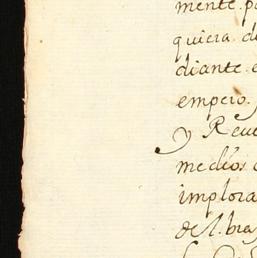 mente. p
quiera. d
diante. e
empero.
y Reve
medios
implora
del. bra